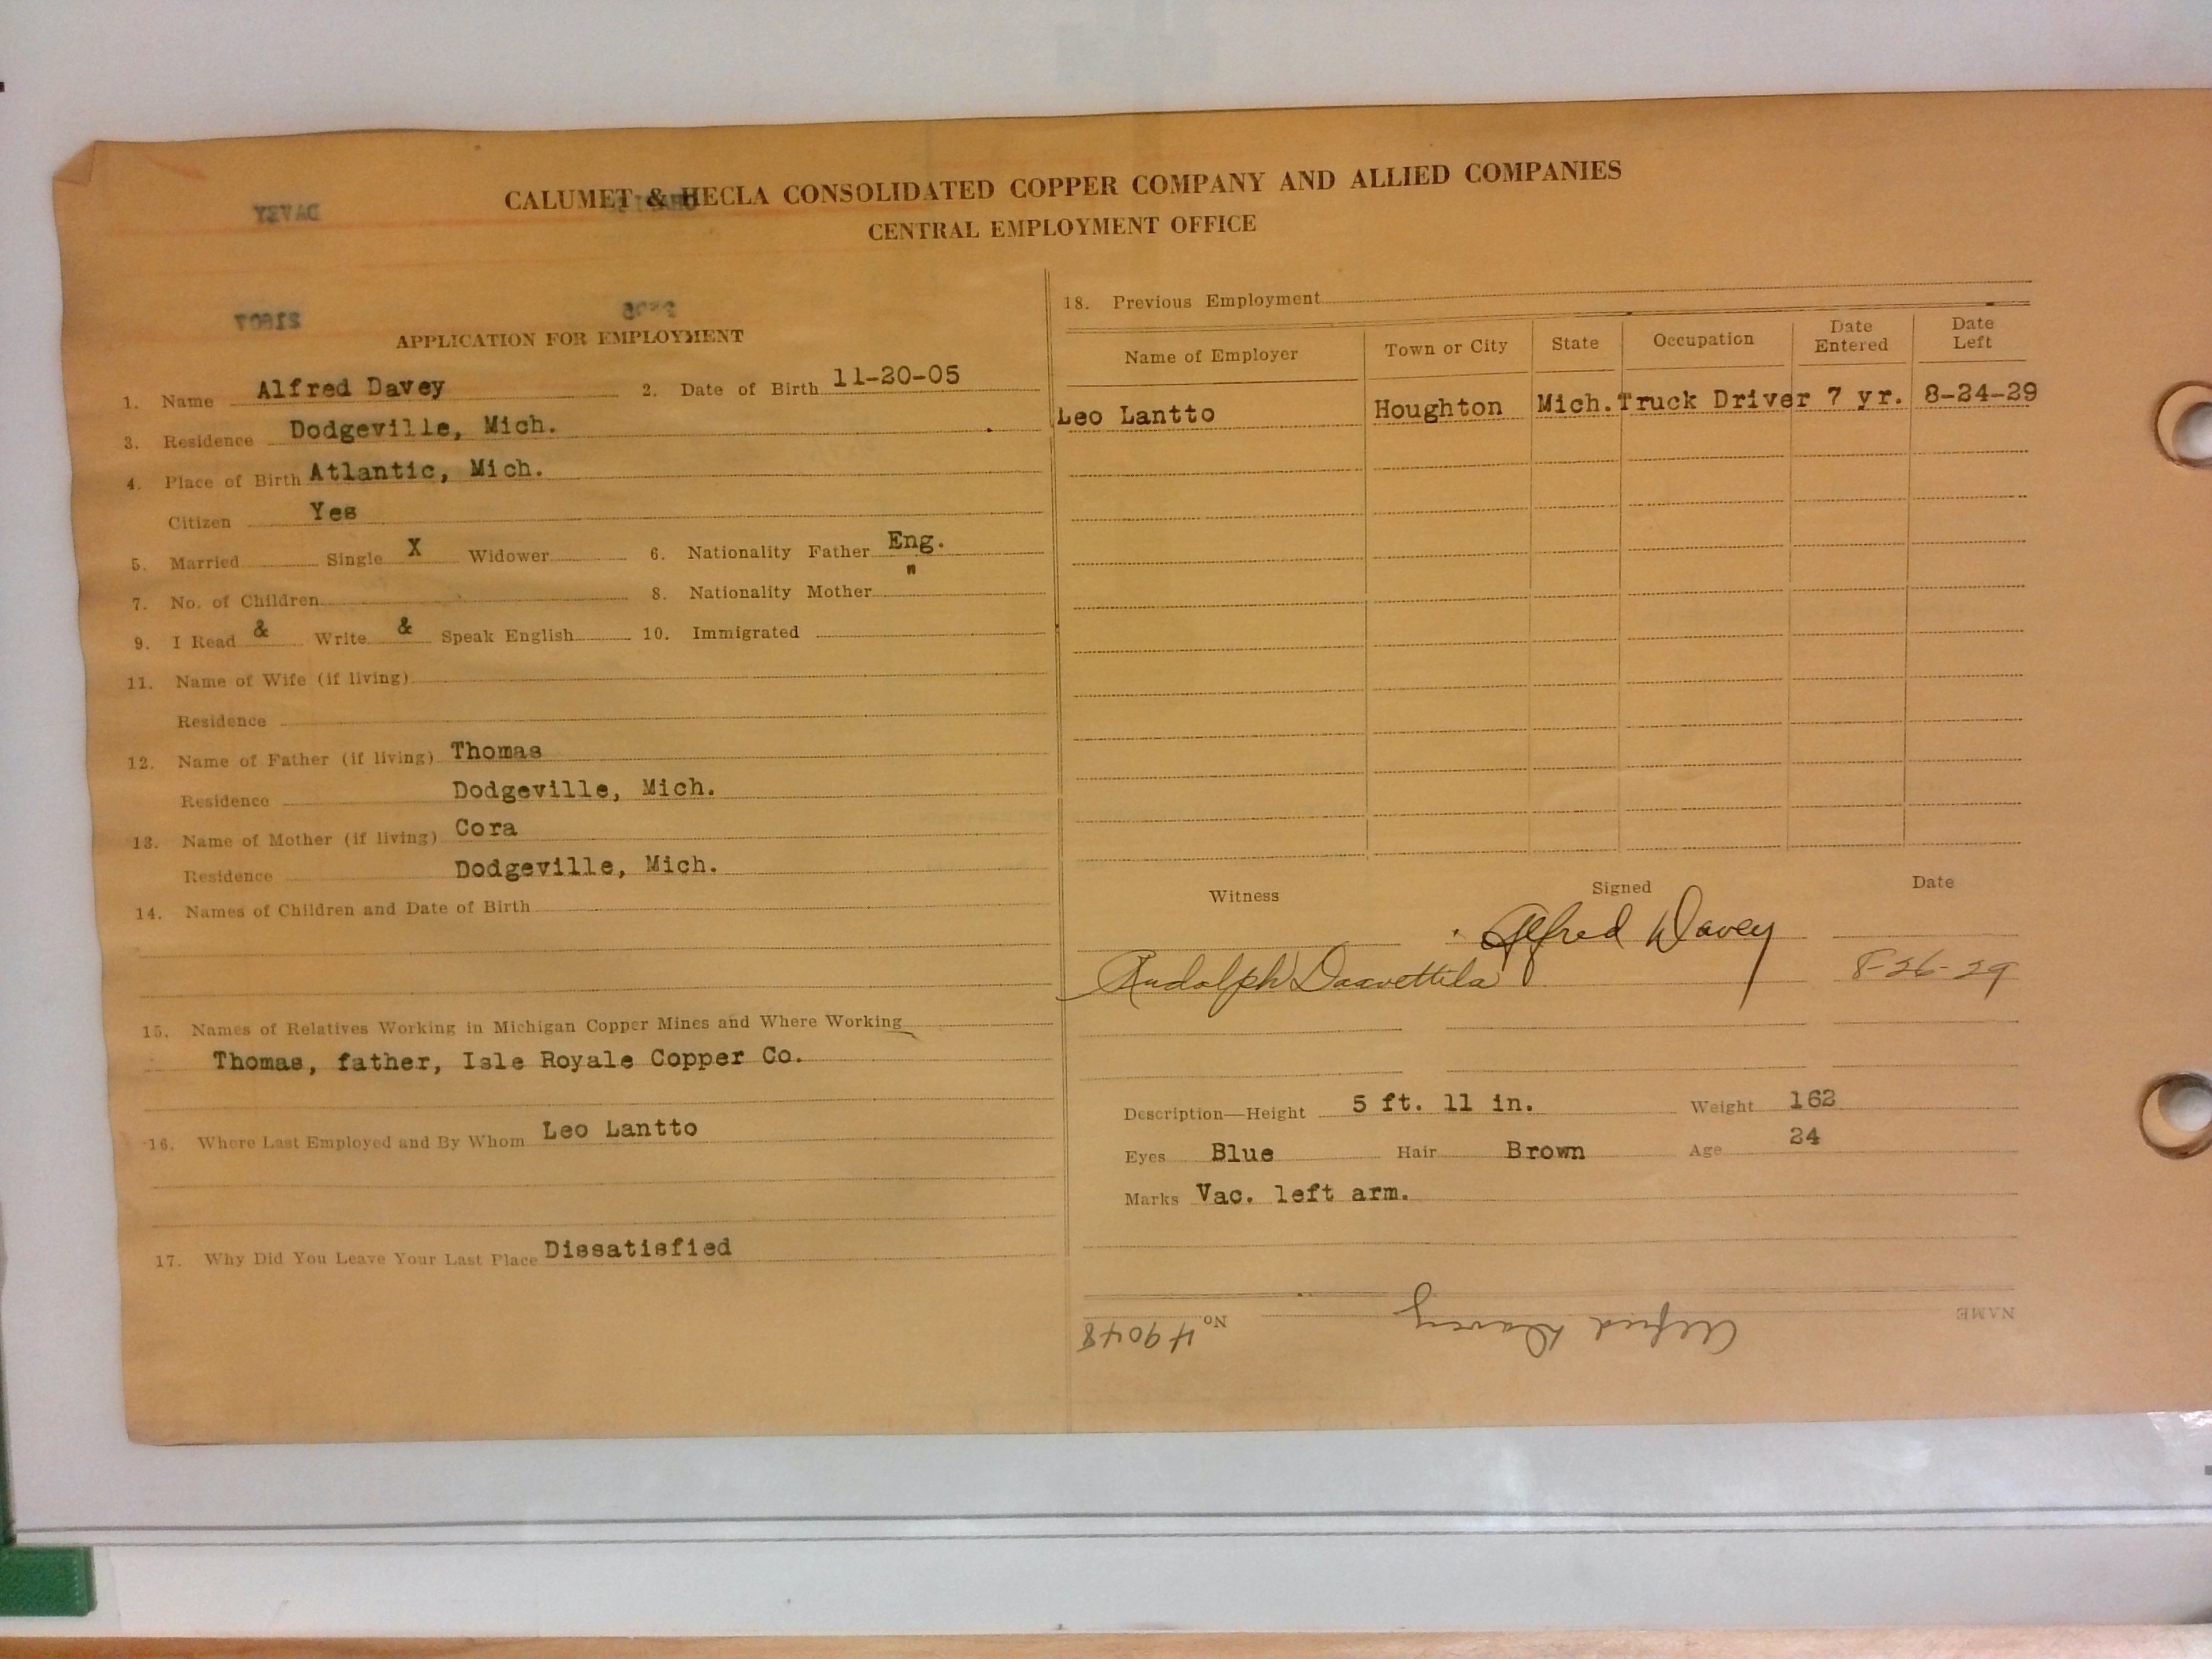 CALUMET & HECLA CONSOLIDATED COPPER COMPANY AND ALLIED COMPANIES
CENTRAL EMPLOYMENT OFFICE
DAVEY
21807
APPLICATION FOR EMPLOYMENT
1. Name Alfred Davey 2. Date of Birth 11-20-05
3. Residence Dodgeville, Mich.
4. Place of Birth Atlantic, Mich.
Citizen Yes
5. Married Single X Widower 6. Nationality Father Eng.
7. No. of Children 8. Nationality Mother "
9. I Read & Write & Speak English 10. Immigrated
11. Name of Wife (if living)
Residence
12. Name of Father (if living) Thomas
Residence Dodgeville, Mich.
13. Name of Mother (if living) Cora
Residence Dodgeville, Mich.
14. Names of Children and Date of Birth
15. Names of Relatives Working in Michigan Copper Mines and Where Working
Thomas, father, Isle Royale Copper Co.
16. Where Last Employed and By Whom Leo Lantto
17. Why Did You Leave Your Last Place Dissatisfied
18. Previous Employment
Name of Employer Town or City State Occupation Date Entered Date Left
Leo Lantto Houghton Mich. Truck Driver 7 yr. 8-24-29
Witness Signed Date
Alfred Davey
Rudolph 8-26-29
Description—Height 5 ft. 11 in. Weight 162
Eyes Blue Hair Brown Age 24
Marks Vac. left arm.
NAME Alfred Davey No. 49048